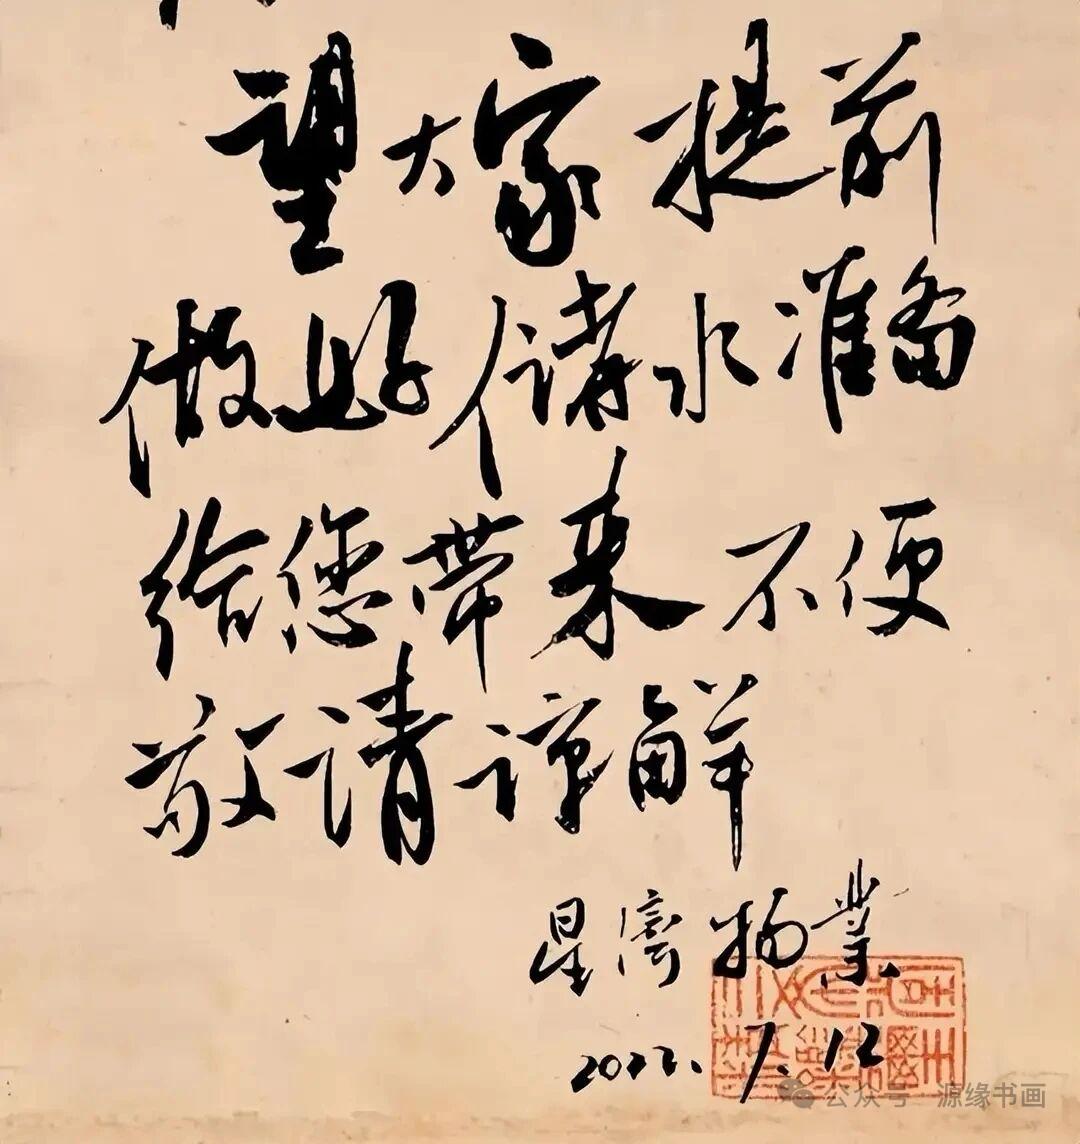 望大家提前
做好储水准备
给您带来不便
敬请谅解
星湾物业
2022.7.12
公众号 源缘书画